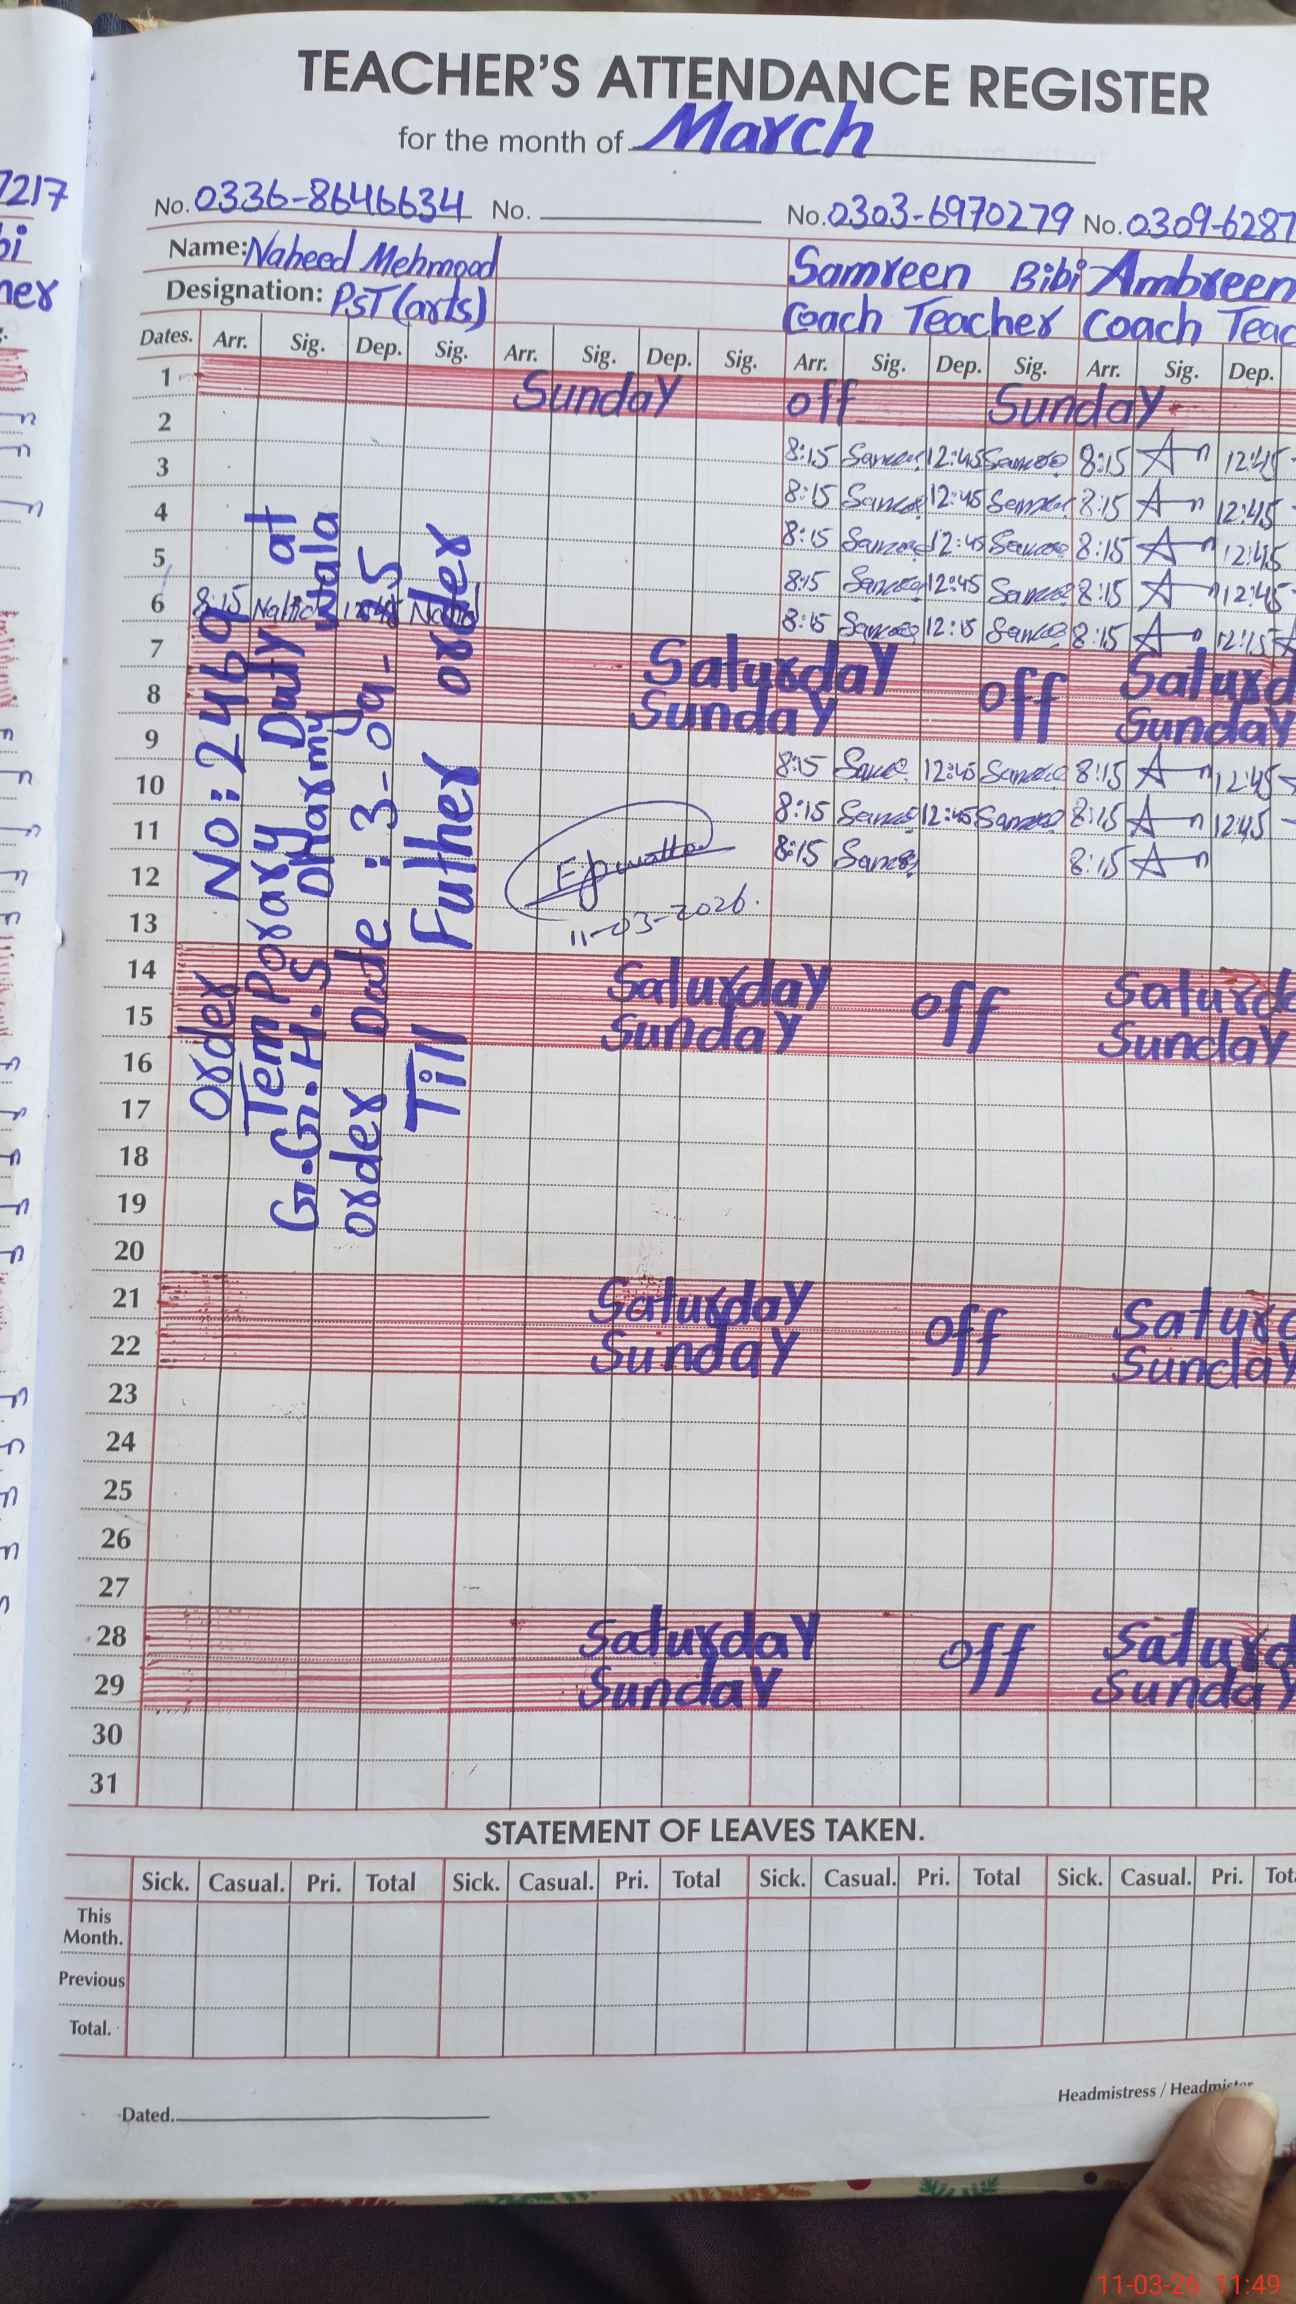 TEACHER'S ATTENDANCE REGISTER
for the month of March
7217
No. 0336-8646634 No. No. 0303-6970279 No. 0309-6287
Name: Naheed Mehmood Samreen Bibi Ambreen
Designation: PST (arts) Coach Teacher Coach Teac
Dates. Arr. Sig. Dep. Sig. Arr. Sig. Dep. Sig. Arr. Sig. Dep. Sig. Arr. Sig. Dep.
1 Sunday off Sunday
2 8:15 12:45 8:15 12:45
3 8:15 12:45 8:15 12:45
4 8:15 12:45 8:15 12:45
5 8:15 12:45 8:15 12:45
6 8:15 12:45 8:15 12:15 8:15 12:15
7 Saturday off Saturd
8 Sunday Sunday
9 8:15 12:45 8:15 12:45
10 8:15 12:45 8:15 12:45
11 8:15 8:15
12
11-03-2026.
13
14 Saturday off Saturd
15 Sunday Sunday
16
17
18
19
20
21 Saturday off Satur
22 Sunday Sunday
23
24
25
26
27
28 Saturday off Saturd
29 Sunday Sunday
30
31
order No: 2469
Temporary Duty at
G.G.H.S Dharmy wala
order Date : 3-09-25
Till Futher order
STATEMENT OF LEAVES TAKEN.
Sick. Casual. Pri. Total Sick. Casual. Pri. Total Sick. Casual. Pri. Total Sick. Casual. Pri. Tot
This Month.
Previous
Total.
Dated.
Headmistress / Headmister
11-03-26 11:49